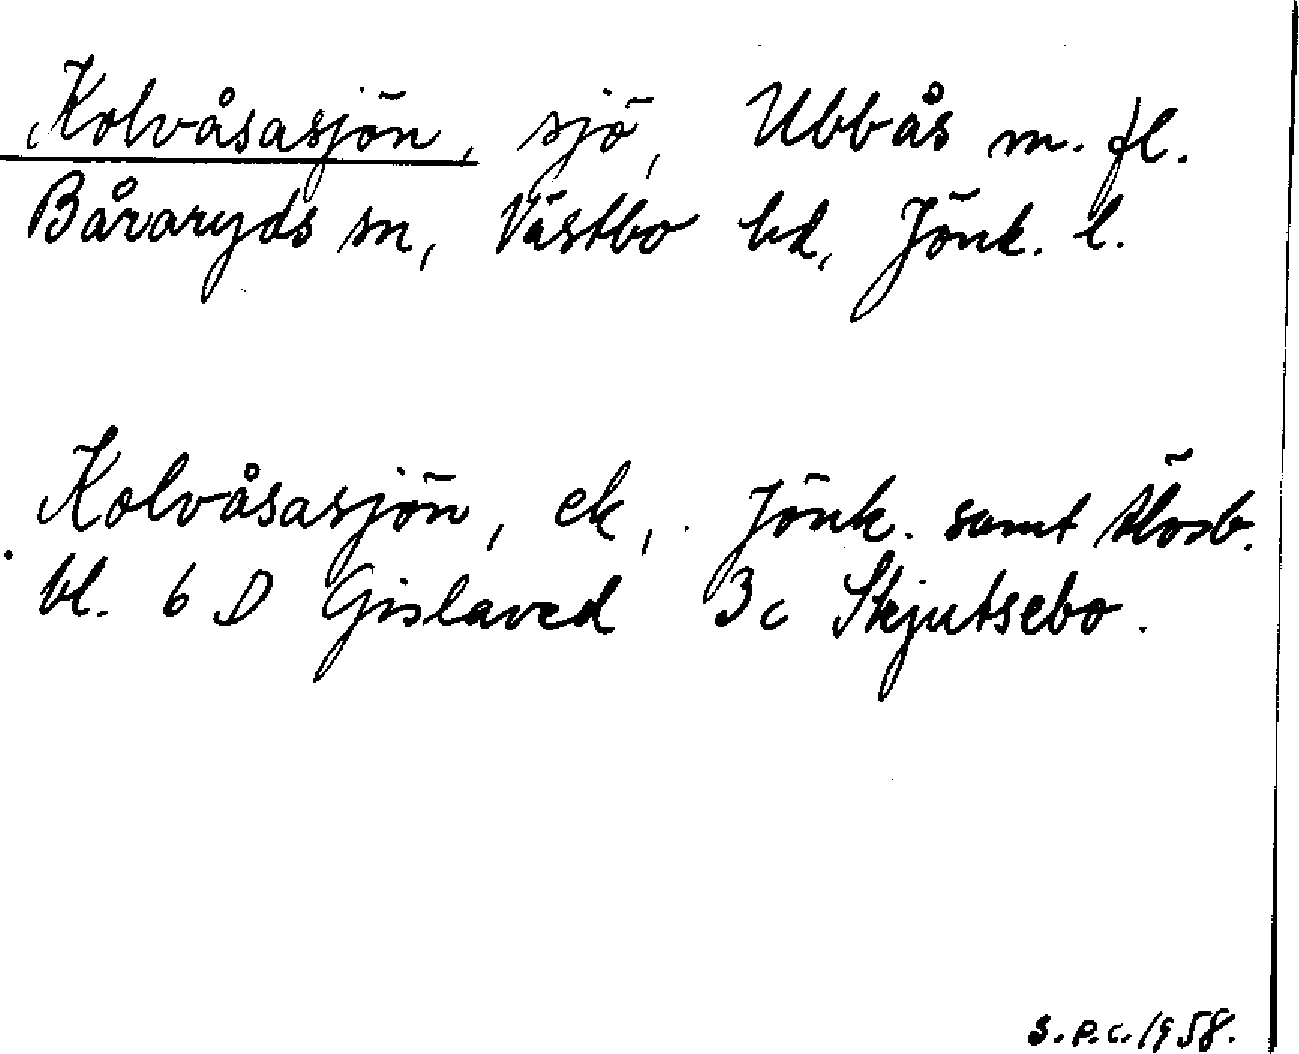 Kolvåsasjön, sjö, Ubbås m. fl.
Båraryds sn, Västbo hd, Jönk. l.
Kolvåsasjön, ek, Jönk. samt
bl. 6 D Gislaved 3c Skjutsebo.
S.P.C. 1958.